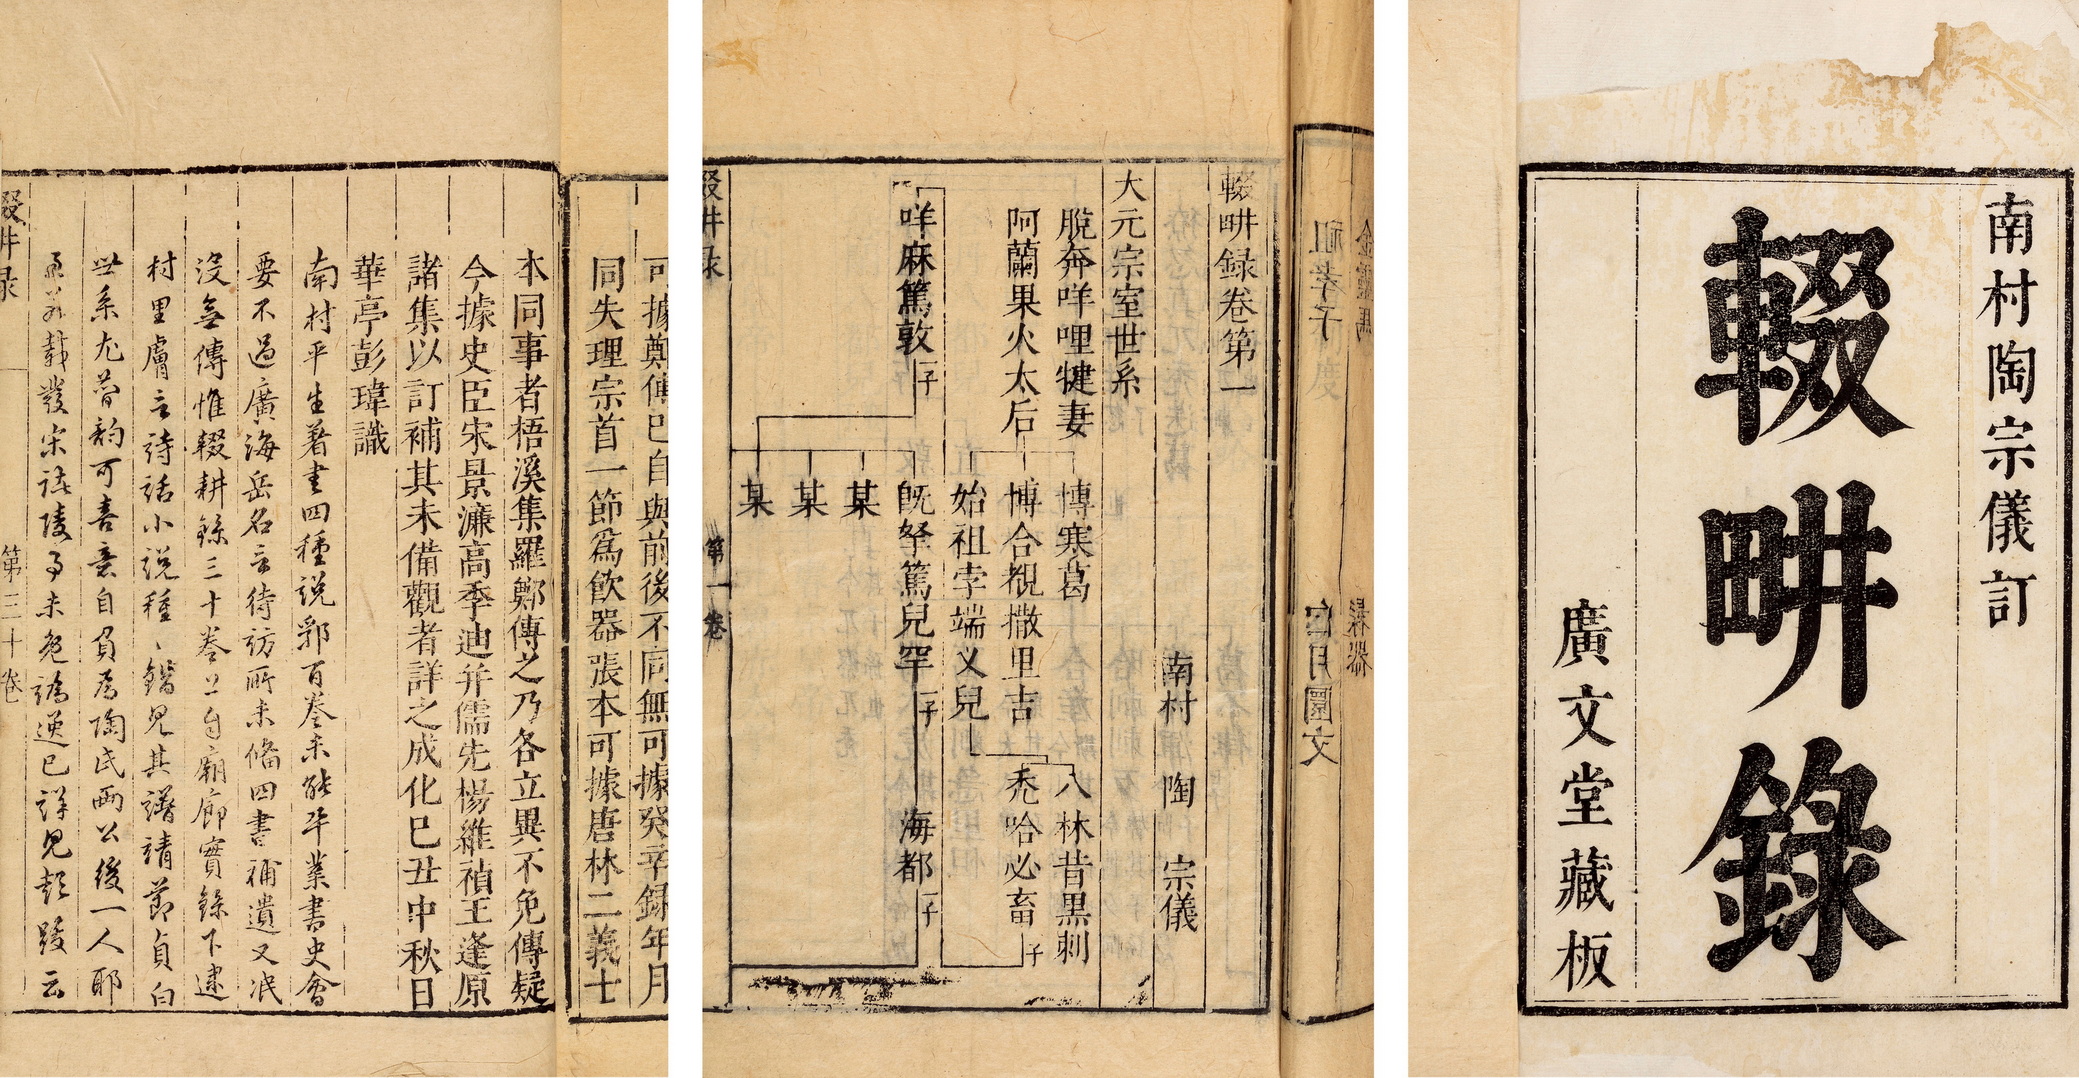 南村陶宗儀訂
輟畊錄
廣文堂藏板
祖孝子
髹器
輟畊録卷第一
南村 陶 宗儀
大元宗室世系
脫奔咩哩犍妻 博寒葛 八林昔黑剌
阿蘭果火太后 博合覩撒里吉 禿哈必畜 子
始祖孛端义兒
咩麻篤敦 一子 旣拏篤兒罕 一子 海都 一子
某
某
某
第一卷
可據鄭傅已自與前後不同無可據癸辛録年月
同失理宗首一節爲飲器張本可據唐林二義士
本同事者梧溪集羅鄭傳之乃各立異不免傳疑
今據史臣宋景濂高季迪并儒先楊維禎王逢原
諸集以訂補其未備觀者詳之成化己丑中秋日
華亭彭瑋識
南村平生著書四種説郛百卷未能卒業書史會
要不過廣海岳名言待訪所未備四書補遺又泯
沒無傳惟輟耕錄三十卷上自廟廊實錄下逮
村里膚言詩話小説種ヽ錯見其譜靖節貞白
世系尤簡韵可喜意自負爲陶氏兩公後一人耶
至若載發宋諸陵事未免譌逆已詳見彭跋云
第三十卷